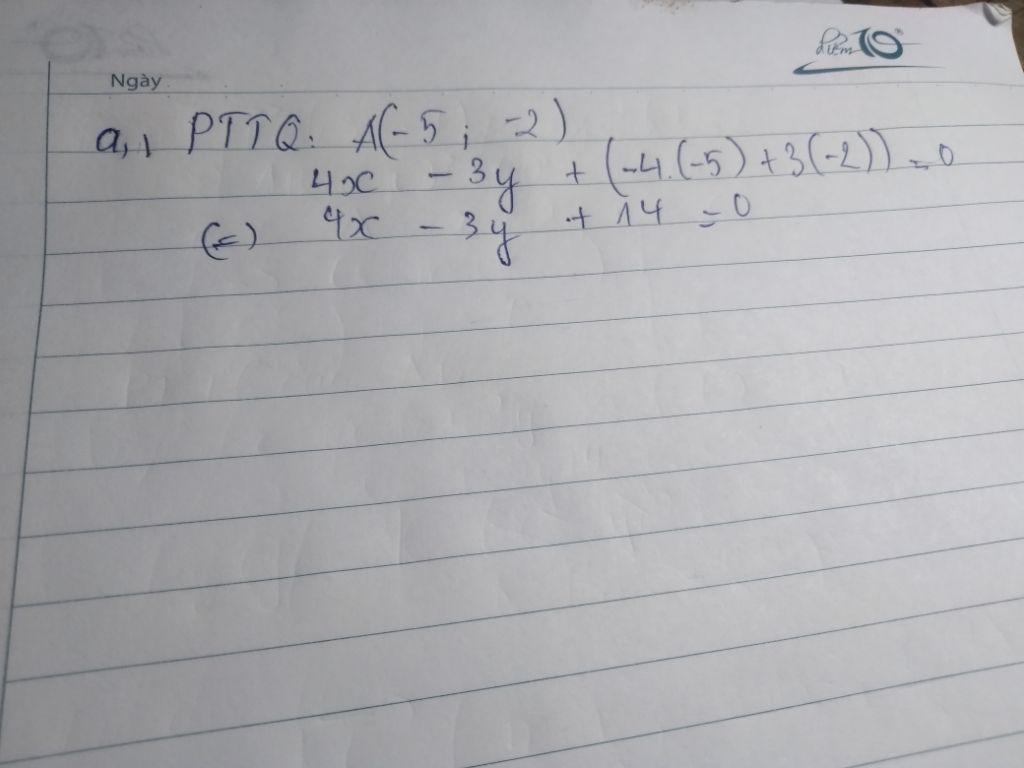 Điểm 10
Ngày
a,1 PTTQ: A(-5; -2)
4x - 3y + (-4.(-5) + 3(-2)) = 0
(=) 4x - 3y + 14 = 0